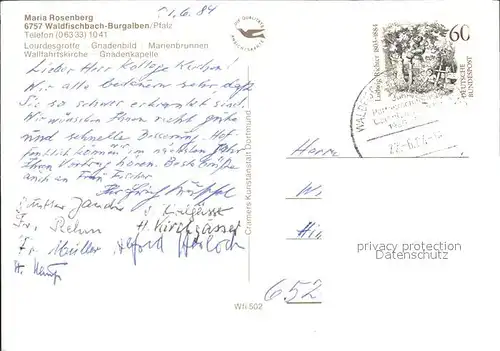 21.6.84
Maria Rosenberg
6757 Waldfischbach-Burgalben/Pfalz
Telefon (0 63 33) 10 41
Lourdesgrotte Gnadenbild Marienbrunnen
Wallfahrtskirche Gnadenkapelle
Lieber Herr Kollege
Wir alle bedauern sehr, daß
Sie so schwer erkrankt sind.
Wir wünschen Ihnen recht gute
und schnelle Besserung. Hof-
fentlich können wir im nächsten Jahr
Ihren Vortrag hören. Beste Grüße
auch an Frau Fischer
Ihr
Fr. Rehm H. Kirchgässer
Fr. Müller Alfred
H.
Cramers Kunstanstalt Dortmund
Ludwig Richter 1803-1884
60
DEUTSCHE
BUNDESPOST
Herrn
W.
Hi
652
privacy protection
Datenschutz
Wfi 502